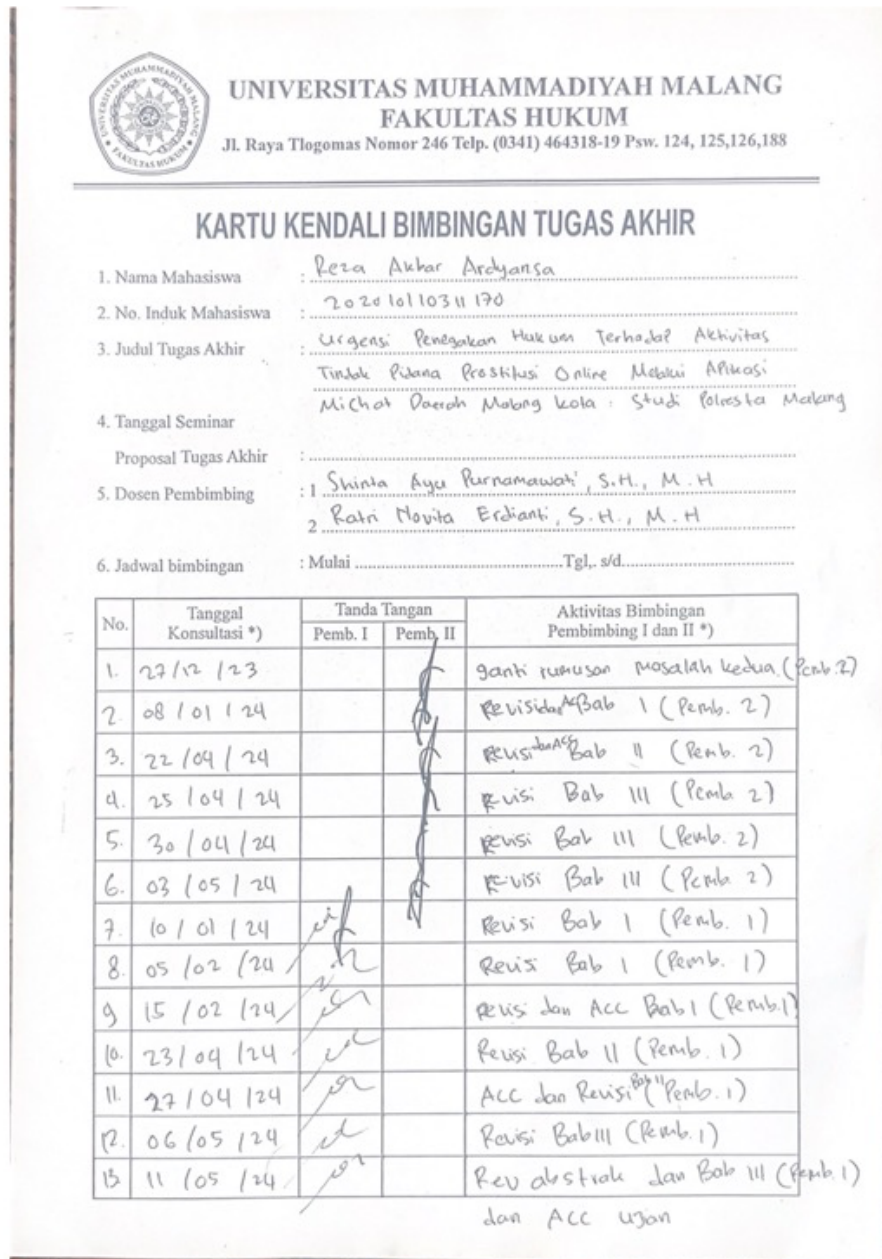 UNIVERSITAS MUHAMMADIYAH MALANG
FAKULTAS HUKUM
UNIVERSITAS MUHAMMADIYAH MALANG
FAKULTAS HUKUM
Jl. Raya Tlogomas Nomor 246 Telp. (0341) 464318-19 Psw. 124, 125,126,188
KARTU KENDALI BIMBINGAN TUGAS AKHIR
1. Nama Mahasiswa : Reza Akbar Ardyansa
2. No. Induk Mahasiswa : 202010110311170
3. Judul Tugas Akhir : Urgensi Penegakan Hukum Terhadap Aktivitas
Tindak Pidana Prostitusi Online Melalui Aplikasi
Michat Daerah Malang Kota : Studi Polresta Malang
4. Tanggal Seminar
Proposal Tugas Akhir :
5. Dosen Pembimbing : 1 Shinta Ayu Purnamawati, S.H., M.H
2 Ratri Novita Erdianti, S.H., M.H
6. Jadwal bimbingan : Mulai ........ Tgl,. s/d........
No. Tanggal Konsultasi *) Tanda Tangan Aktivitas Bimbingan
Pemb. I Pemb. II Pembimbing I dan II *)
1. 27/12/23 ganti rumusan masalah kedua (Pemb. 2)
2. 08/01/24 Revisi dan Acc Bab I (Pemb. 2)
3. 22/04/24 Revisi dan ACC Bab II (Pemb. 2)
4. 25/04/24 Revisi Bab III (Pemb. 2)
5. 30/04/24 Revisi Bab III (Pemb. 2)
6. 03/05/24 Revisi Bab III (Pemb. 2)
7. 10/01/24 Revisi Bab I (Pemb. 1)
8. 05/02/24 Revisi Bab I (Pemb. 1)
9 15/02/24 Revisi dan ACC Bab I (Pemb. 1)
10. 23/04/24 Revisi Bab II (Pemb. 1)
11. 27/04/24 ACC dan Revisi Bab II (Pemb. 1)
12. 06/05/24 Revisi Bab III (Pemb. 1)
13 11/05/24 Rev abstrak dan Bab III (Pemb. 1)
dan ACC ujian